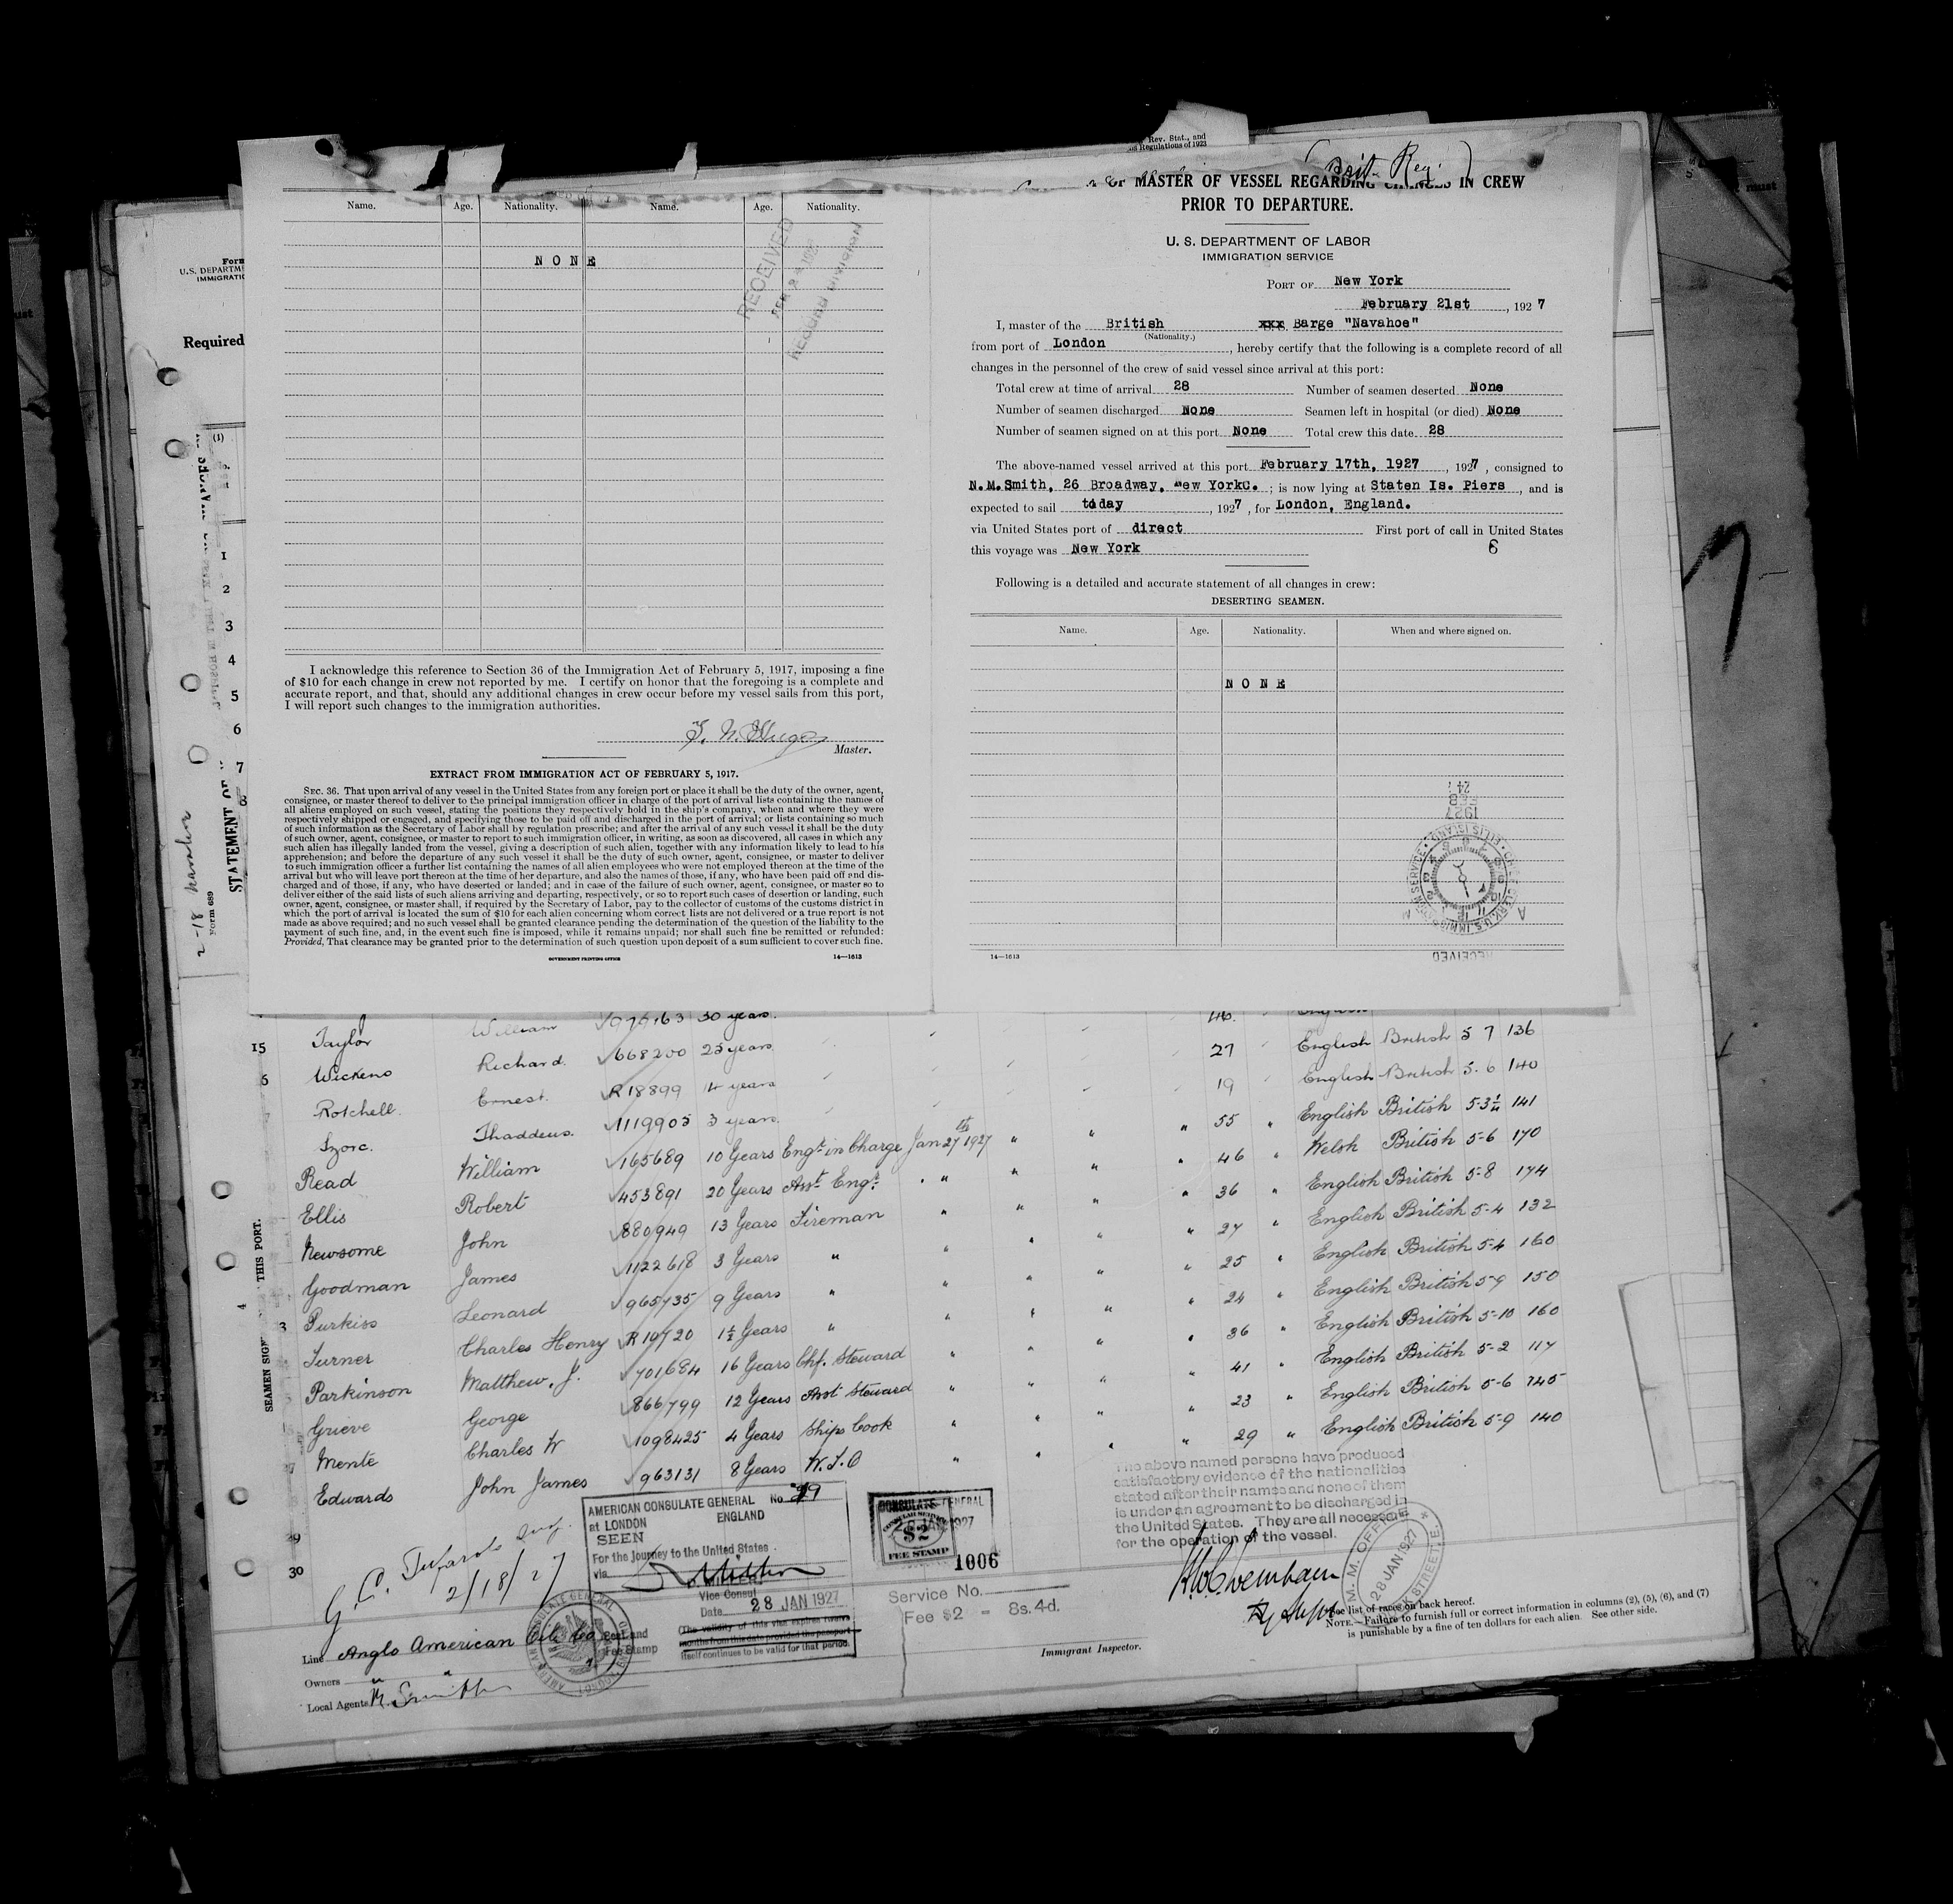 Rev. Stat., and
Regulations of 1923
(Brit. Reg.)
Name. Age. Nationality. Name. Age. Nationality.
NONE
RECEIVED
RECORD DIVISION
I acknowledge this reference to Section 36 of the Immigration Act of February 5, 1917, imposing a fine
of $10 for each change in crew not reported by me. I certify on honor that the foregoing is a complete and
accurate report, and that, should any additional changes in crew occur before my vessel sails from this port,
I will report such changes to the immigration authorities.
Master.
EXTRACT FROM IMMIGRATION ACT OF FEBRUARY 5, 1917.
SEC. 36. That upon arrival of any vessel in the United States from any foreign port or place it shall be the duty of the owner, agent,
consignee, or master thereof to deliver to the principal immigration officer in charge of the port of arrival lists containing the names of
all aliens employed on such vessel, stating the positions they respectively hold in the ship's company, when and where they were
respectively shipped or engaged, and specifying those to be paid off and discharged in the port of arrival; or lists containing so much
of such information as the Secretary of Labor shall by regulation prescribe; and after the arrival of any such vessel it shall be the duty
of such owner, agent, consignee, or master to report to such immigration officer, in writing, as soon as discovered, all cases in which any
such alien has illegally landed from the vessel, giving a description of such alien, together with any information likely to lead to his
apprehension; and before the departure of any such vessel it shall be the duty of such owner, agent, consignee, or master to deliver
to such immigration officer a further list containing the names of all alien employees who were not employed thereon at the time of the
arrival but who will leave port thereon at the time of her departure, and also the names of those, if any, who have been paid off and dis-
charged and of those, if any, who have deserted or landed; and in case of the failure of such owner, agent, consignee, or master so to
deliver either of the said lists of such aliens arriving and departing, respectively, or so to report such cases of desertion or landing, such
owner, agent, consignee, or master, shall, if required by the Secretary of Labor, pay to the collector of customs of the customs district in
which the port of arrival is located the sum of $10 for each alien concerning whom correct lists are not delivered or a true report is not
made as above required; and no such vessel shall be granted clearance pending the determination of the question of the liability to the
payment of such fine, and, in the event such fine is imposed, while it remains unpaid; nor shall such fine be remitted or refunded:
Provided, That clearance may be granted prior to the determination of such question upon deposit of a sum sufficient to cover such fine.
GOVERNMENT PRINTING OFFICE 14—1613
OF MASTER OF VESSEL REGARDING CHANGES IN CREW
PRIOR TO DEPARTURE.
U. S. DEPARTMENT OF LABOR
IMMIGRATION SERVICE
PORT OF New York
February 21st, 1927
I, master of the British xxx Barge "Navahoe"
(Nationality.)
from port of London, hereby certify that the following is a complete record of all
changes in the personnel of the crew of said vessel since arrival at this port:
Total crew at time of arrival 28 Number of seamen deserted None
Number of seamen discharged None Seamen left in hospital (or died) None
Number of seamen signed on at this port None Total crew this date 28
The above-named vessel arrived at this port February 17th, 1927, 1927, consigned to
N.M.Smith, 26 Broadway, New YorkC. ; is now lying at Staten Is. Piers, and is
expected to sail today, 1927, for London, England.
via United States port of direct First port of call in United States
this voyage was New York 6
Following is a detailed and accurate statement of all changes in crew:
DESERTING SEAMEN.
Name. Age. Nationality. When and where signed on.
NONE
1927
FEB 24
RECEIVED
14—1613
Form
U.S. DEPARTME
IMMIGRATIO
Required
(1)
1
2
3
4
5
6
7
8
STATEMENT OF
Form 689
2-18 Navahoe
SEAMEN SIGN THIS PORT.
15 Taylor William 979163 30 years 46 English
6 Wickens Richard. 668200 25 years 27 English British 5 7 136
Rotchell. Ernest. R18899 14 years 19 English British 5-6 140
Szorc. Thaddeus. 1119905 3 years. 55 " English British 5-3¼ 141
Read William 165689 10 Years Engr in Charge Jan 27th 1927 " " " 46 " Welsh British 5-6 170
Ellis Robert 453891 20 Years Asst Engr. " " " " 36 " English British 5-8 174
Newsome John 880949 13 Years Fireman " " " " 27 " English British 5-4 132
Goodman James 1122618 3 Years " " " " " 25 " English British 5-4 160
3 Purkiss Leonard 965735 9 Years " " " " " 24 " English British 5-9 150
Turner Charles Henry R19720 1½ Years " " " " " 36 " English British 5-10 160
Parkinson Matthew. J. 701684 16 Years Chf. Steward " " " " 41 " English British 5-2 117
Grieve George 866799 12 Years Asst Steward " " " " 23 " English British 5-6 145
Mente Charles W 1098425 4 Years Ships Cook " " " " 29 " English British 5-9 140
Edwards John James 963131 8 Years W.T.O " "
29
30
2/18/27
AMERICAN CONSULATE GENERAL No.
at LONDON ENGLAND
SEEN
For the Journey to the United States
via
Vice Consul
Date 28 JAN 1927
(The validity of this visa expires twelve
months from this date provided the passport
itself continues to be valid for that period.
Seal and
Fee Stamp
CONSULATE GENERAL
$2
FEE STAMP
1006
Service No.
Fee $2 = 8s. 4d.
The above named persons have produced
satisfactory evidence of the nationalities
stated after their names and none of them
is under an agreement to be discharged in
the United States. They are all necessary
for the operation of the vessel.
M. M. OFFICE
28 JAN 1927
STREET, E.
Line Anglo American Oil Co
Owners "
Local Agents N. Smith
Immigrant Inspector.
See list of races on back hereof.
NOTE.—Failure to furnish full or correct information in columns (2), (5), (6), and (7)
is punishable by a fine of ten dollars for each alien. See other side.